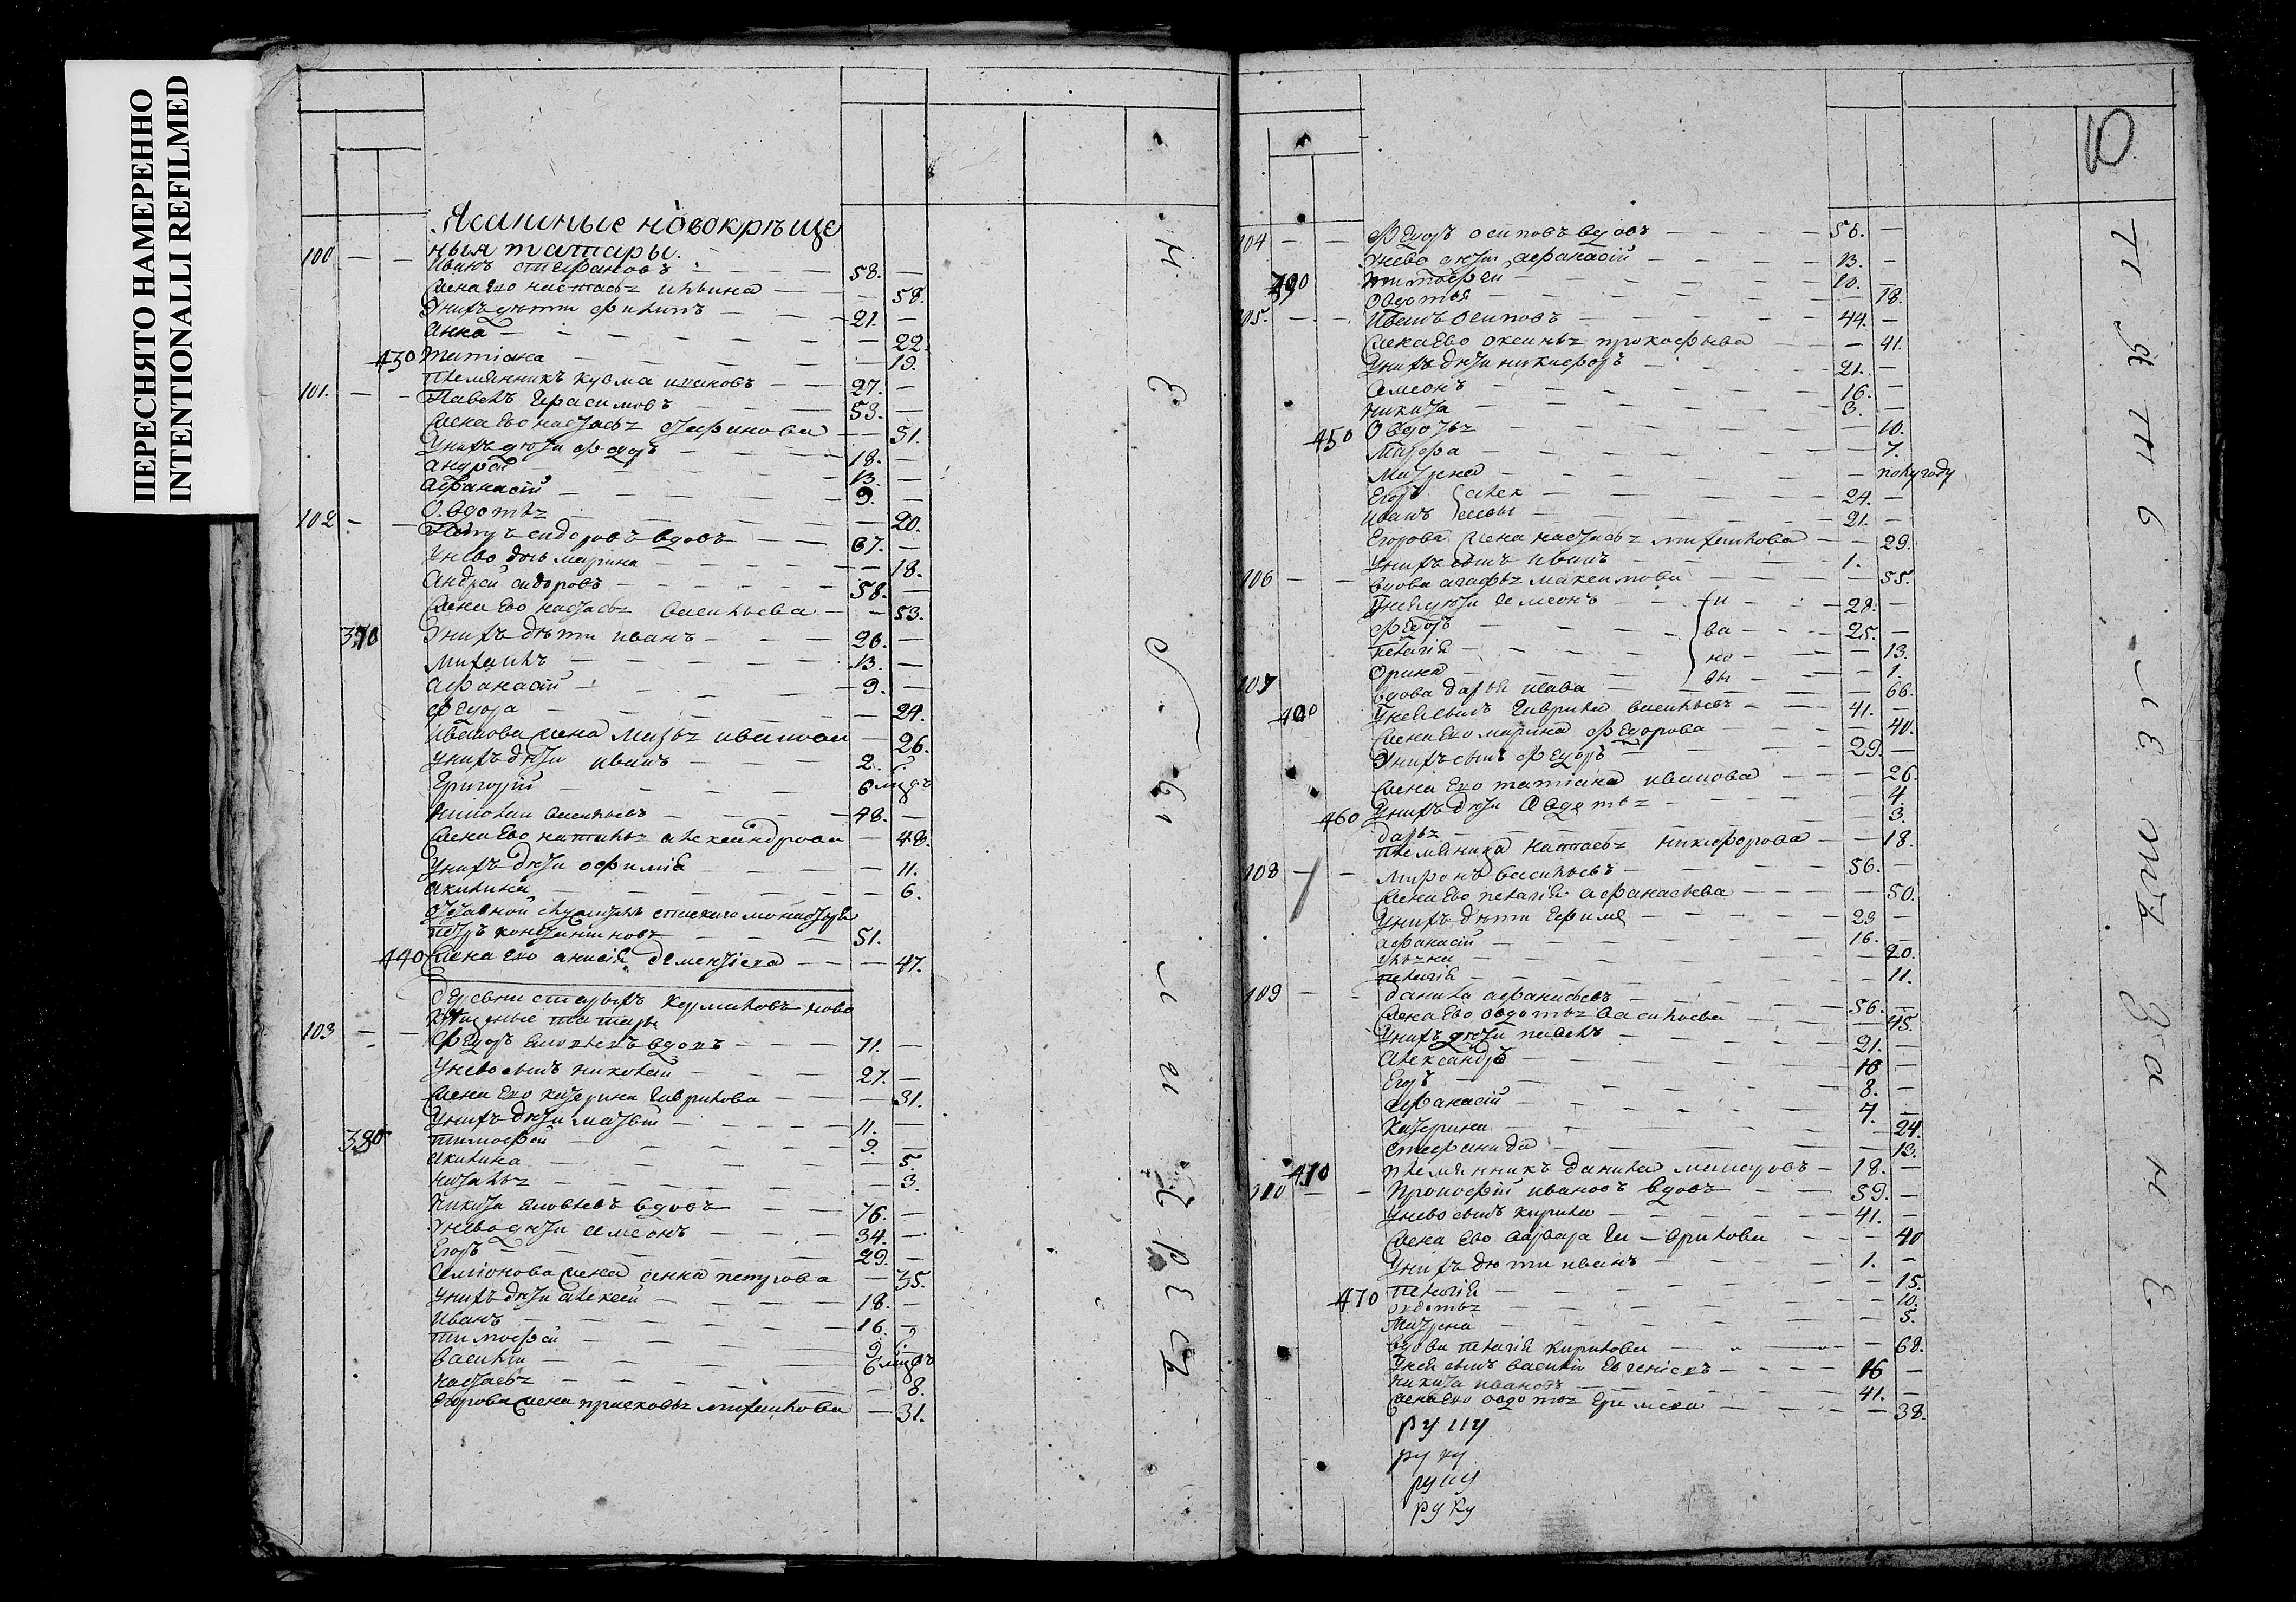 ПЕРЕСНЯТО НАМЕРЕННО
INTENTIONALLI REFILMED
Ясашные новокръще
ныя татары.
100 — — Иванъ стефановъ — — — 58. —
Жена Ево настасья ильина — — 58.
Унихъ дѣти филипъ — — — 21. —
анна — — — 22.
430 татiана — — — 19.
племянникъ кузма исаковъ — — 27. —
101. — — Павелъ Герасимовъ — — 53. —
Жена Ево настасья стефанова — — 51.
Унихъ дѣти федоръ — — — 18. —
андрей — — — 13. —
афанасiй — — — 9. —
Овдотья — — — 20.
102 — — Петръ сидоровъ вдовъ — — 67. —
Унево дочь марина — — — 18.
Андрей сидоровъ — — — 58. —
Жена Ево настасья васильева — — 53.
370 Унихъ дѣти иванъ — — — 26. —
михаилъ — — — 13. —
афанасiй — — — 9. —
федора — — — 24.
Иванова жена марья иванова — 26.
Унихъ дѣти иванъ — — — 2.
Григорiй — — — 6
николаи васильевъ — — — 48. —
Жена Ево наталья александрова — 48.
Унихъ дѣти офимiя — — — 11.
акилина — — — 6.
отставной служитель спаского монастыря
петръ константиновъ — — — 51.
440 Жена Ево анисiя дементiева — — 47.
деревни старыхъ курмановъ ново
крещеные татары
103 — — Федоръ яковлевъ вдовъ — — 71. —
Унево сынъ николаи — — — 27. —
Жена Ево катерина Гаврилова — — 31.
Унихъ дѣти матвей — — — 11. —
380 тимофей — — — 9. —
акилина — — — 5.
наталья — — — 3.
никита яковлевъ вдовъ — — 76. —
Унево дѣти семёонъ — — — 34. —
Егоръ — — — 29. —
Семiонова жена анна петрова — 35.
Унихъ дѣти алексеи — — — 18. —
Иванъ — — — 16. —
тимофей — — — 9. —
василiи — — — 6
настасья — — — 8.
Егорова жена прасковья михаилова — 31.
10
104 — — Федоръ осиповъ вдовъ — — — 56. —
Унево дѣти афанасiй — — — 13. —
390 тимофеи — — — 10. —
Овдотья — — — 18.
105. — — Иванъ осиповъ — — — 44. —
Жена Ево оксинья прокофьева — — 41.
Унихъ дѣти никифоръ — — — 21. —
Семеонъ — — — 16. —
никита — — — 3. —
450 Овдотья — — — 10.
Марфа — — — 7.
Матрена — — — полугоду
Егоръ алек — — 24. —
Иванъ сеевы — — 21. —
Егорова жена настасья михаилова — — 29.
Унихъ сынъ иванъ — — — 1. —
106 — — вдова агафья максимова — — 55.
Унея дѣти семеонъ — и — 28. —
федоръ — ва — 25. —
пелагiя — но — 13.
Орина — вы — 1.
107 вдова дарья исаева — — 66.
400 Унея сынъ Гаврила васильевъ — — 41. —
Жена Ево марина Федорова — — 40.
Унихъ сынъ федоръ — — — 29. —
Жена Ево татiана иванова — — 26.
460 Унихъ дѣти Овдотья — — — 4.
дарья — — — 3.
племяница настасья никифорова — — 18.
108 — — миронъ васильевъ — — — 56. —
Жена Ево пелагiя афанасьева — — 50.
Унихъ дѣти Ефимъ — — — 29 —
афанасiй — — — 16. —
ульяна — — — 20.
пелагiя — — — 11.
109 — — данила афанасьевъ — — — 56. —
Жена Ево овдотья васильева — — 45.
Унихъ дѣти павелъ — — — 21. —
александръ — — — 10 —
Егоръ — — — 8. —
афанасiй — — — 4. —
Катерина — — — 24.
стефанида — — — 13.
410 племянникъ данила — 18. —
110 — — Прокофiй ивановъ вдовъ — — 59. —
Унево сынъ кирила — — — 41. —
Жена Ево варвара Га — врилова — — 40
Унихъ дѣти иванъ — — — 1. —
пелагiя — — — 15.
470 овдотья — — — 10.
Матрена — — — 5.
вдова пелагiя кирилова — — 68.
Унея сынъ василiй — — — 16 —
никита ивановъ — — — 41. —
жена Ево овдотья — — — 38.
руку
руку
руку
руку